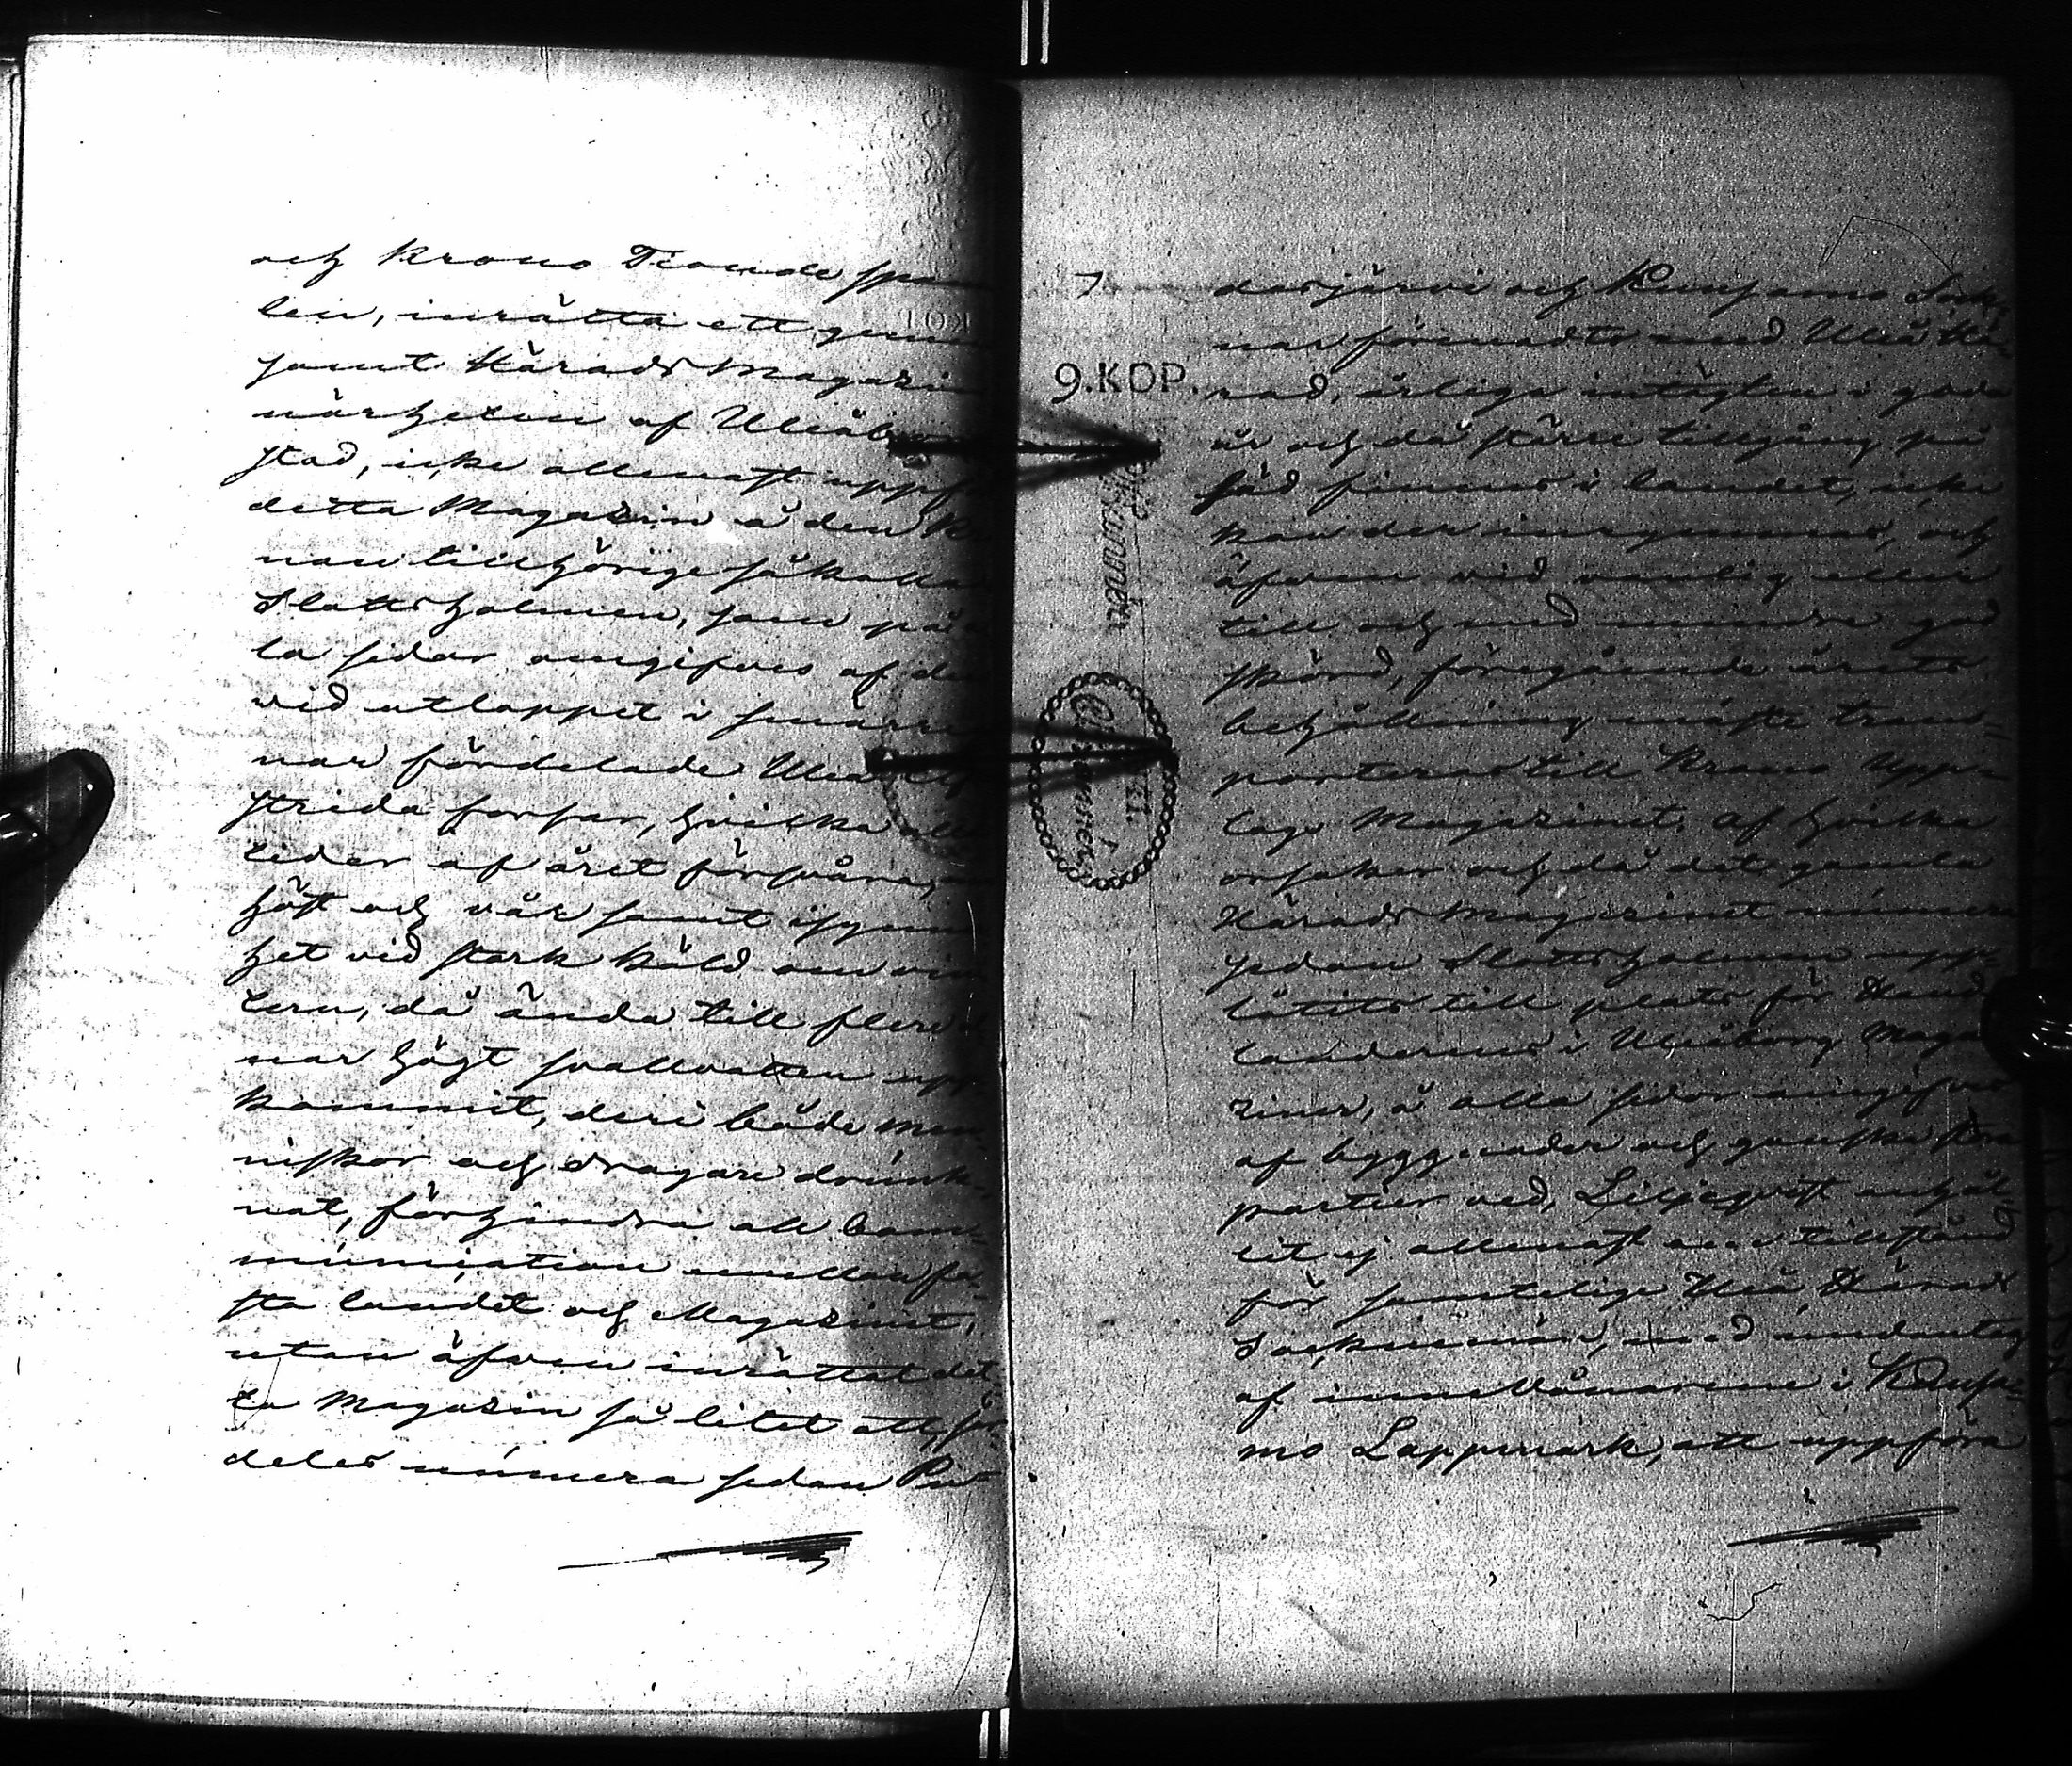 och Krono Tionde span
len, inrätta ett gemen
samt Härads Magazin
närheten af Uleåborgs
stad, icke allenast uppfö
detta Magazin å den Kro
nan tillhörige så kalla
Slottsholmen, som på a
la sidor omgifves af de
vid utloppet i smärre
nar fördelade Uleå elfs
strida forsar, hvilka
tider af året försvåra,
höst och vår samt isynner
het vid stark köld om vin
tern, då ända till flere
nar högt svallvatten upp
kommit, deri både men-
niskor och dragare drunk-
nat, förhindra all kom-
munication emellan fa-
sta landet och Magazinet,
utan äfven inrättat det
ta Magazin så litet att, sär-
deles numera sedan Pu
7
9.KOP.
dasjärvi och Kuusamo Sock-
nar förenadts med Uleå Hä-
rad, årliga intägten i goda
år och då större tillgång på
säd finnes i landet, icke
kan der inrymmas, och
äfven vid vanlig eller
till och med mindre god
skörd, föregående årets
behållning måste trans-
porteras till Krono Upp-
lags Magazinet, af hvilka
orsaker och då det gamla
Härads Magazinet numera
sedan Slottsholmen upp-
låtits till plats för Hand-
landerne i Uleåborg Maga-
ziner, å alla sidor omgifves
af byggnader och ganska stora
partier ved, Liljeqvist anhål-
lit ej allenast om tillstånd
för samtelige Uleå Härads
Sockenmän, med undantag
af innevånarene i Kuusa-
mo Lappmark, att uppföra